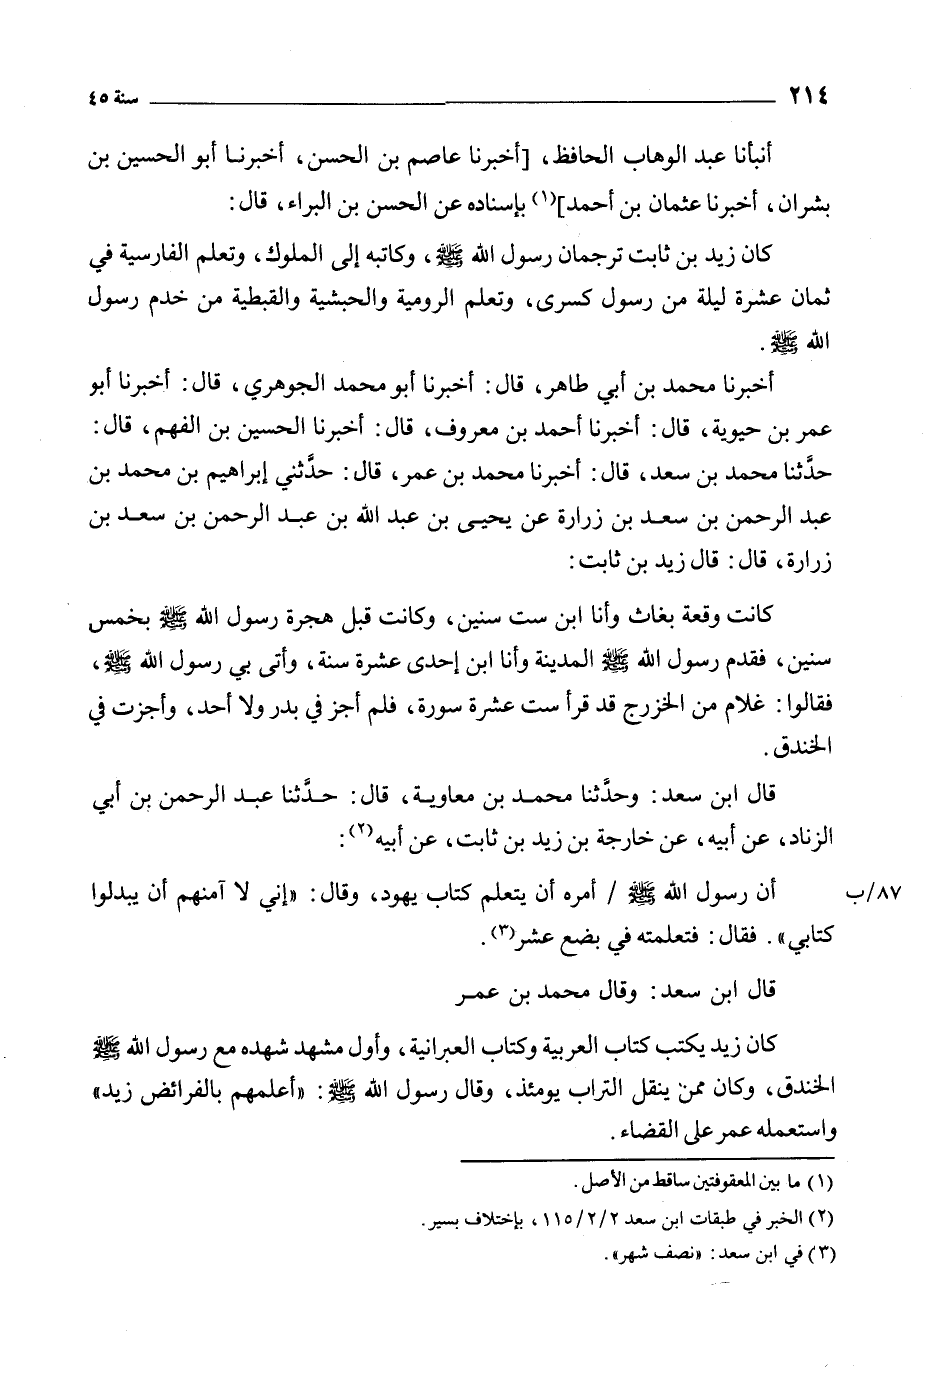 ٢١٤ سنة ٤٥
أنبأنا عبد الوهاب الحافظ، [أخبرنا عاصم بن الحسن، أخبرنـا أبو الحسين بن
بشران، أخبرنا عثمان بن أحمد](١) بإسناده عن الحسن بن البراء، قال:
كان زيد بن ثابت ترجمان رسول الله ﷺ، وكاتبه إلى الملوك، وتعلم الفارسية في
ثمان عشرة ليلة من رسول كسرى، وتعلم الرومية والحبشية والقبطية من خدم رسول
الله ﷺ.
أخبرنا محمد بن أبي طاهر، قال: أخبرنا أبو محمد الجوهري، قال: أخبرنا أبو
عمر بن حيوية، قال: أخبرنا أحمد بن معروف، قال: أخبرنا الحسين بن الفهم، قال:
حدَّثنا محمد بن سعد، قال: أخبرنا محمد بن عمر، قال: حدَّثني إبراهيم بن محمد بن
عبد الرحمن بن سعـد بن زرارة عن يحيـى بن عبد الله بن عبـد الرحمن بن سعـد بن
زرارة، قال: قال زيد بن ثابت:
كانت وقعة بغاث وأنا ابن ست سنين، وكانت قبل هجرة رسول الله ﷺ بخمس
سنين، فقدم رسول الله ﷺ المدينة وأنا ابن إحدى عشرة سنة، وأتى بي رسول الله ﷺ،
فقالوا: غلام من الخزرج قد قرأ ست عشرة سورة، فلم أجز في بدر ولا أحد، وأجزت في
الخندق.
قال ابن سعد: وحدَّثنا محمـد بن معاويـة، قال: حـدَّثنا عبـد الرحمن بن أبي
الزناد، عن أبيه، عن خارجة بن زيد بن ثابت، عن أبيه(٢):
أن رسول الله ﷺ / أمره أن يتعلم كتاب يهود، وقال: «إني لا آمنهم أن يبدلوا ٨٧/ب
كتابي». فقال: فتعلمته في بضع عشر(٣).
قال ابن سعد: وقال محمد بن عمـر
كان زيد يكتب كتاب العربية وكتاب العبرانية، وأول مشهد شهده مع رسول الله ﷺ
الخندق، وكان ممن ينقل التراب يومئذ، وقال رسول الله ﷺ: «أعلمهم بالفرائض زيد»
واستعمله عمر على القضاء.
(١) ما بين المعقوفتين ساقط من الأصل.
(٢) الخبر في طبقات ابن سعد ٢/٢/١١٥، بإختلاف بسير.
(٣) في ابن سعد: «نصف شهر».